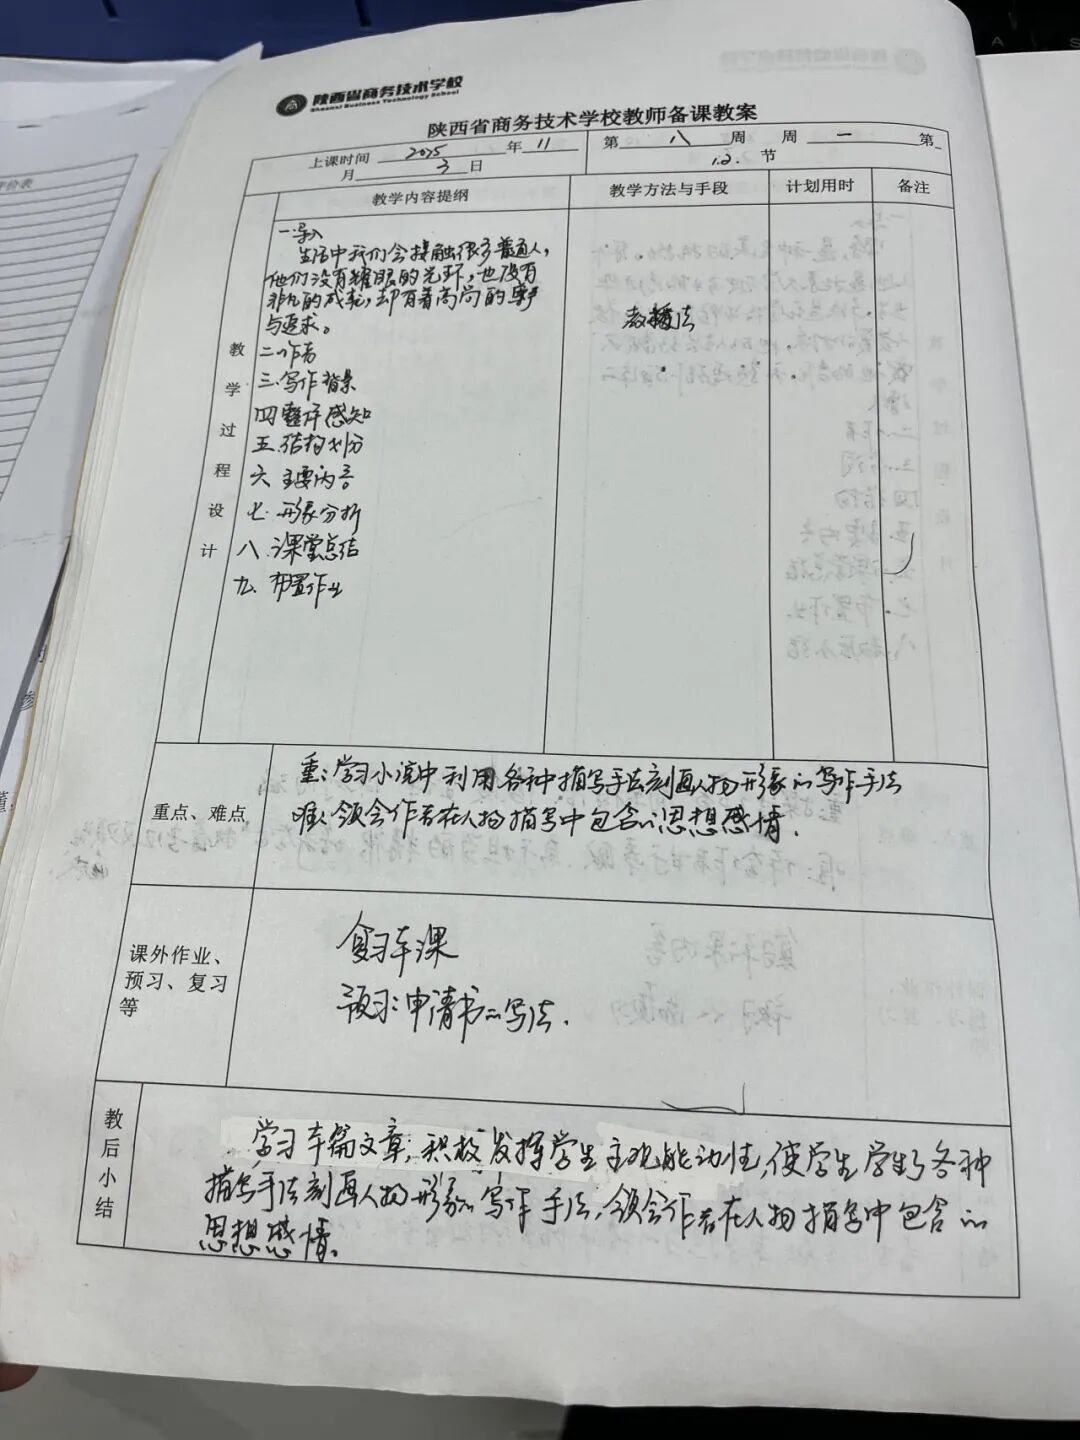 陕西省商务技术学校
Shaanxi Business Technology School
陕西省商务技术学校教师备课教案
上课时间 2025 年 11 月 3 日
第 八 周 周 一 第 1.2. 节
教学内容提纲 教学方法与手段 计划用时 备注
教学过程设计
一.导入
生活中我们会接触很多普通人,
他们没有耀眼的光环,也没有
非凡的成就,却有着高尚的
与追求。
讲授法
二.作者
三.写作背景
四.整体感知
五.结构划分
六.主要内容
七.形象分析
八.课堂总结
九.布置作业
重点、难点
重:学习小说中利用各种描写手法刻画人物形象的写作手法
难:领会作者在人物描写中包含的思想感情.
课外作业、
预习、复习
等
复习本课
预习:申请书的写法.
教后小结
学习本篇文章,积极发挥学生主观能动性,使学生学生了各种
描写手法刻画人物形象的写作手法,领会作者在人物描写中包含的
思想感情。